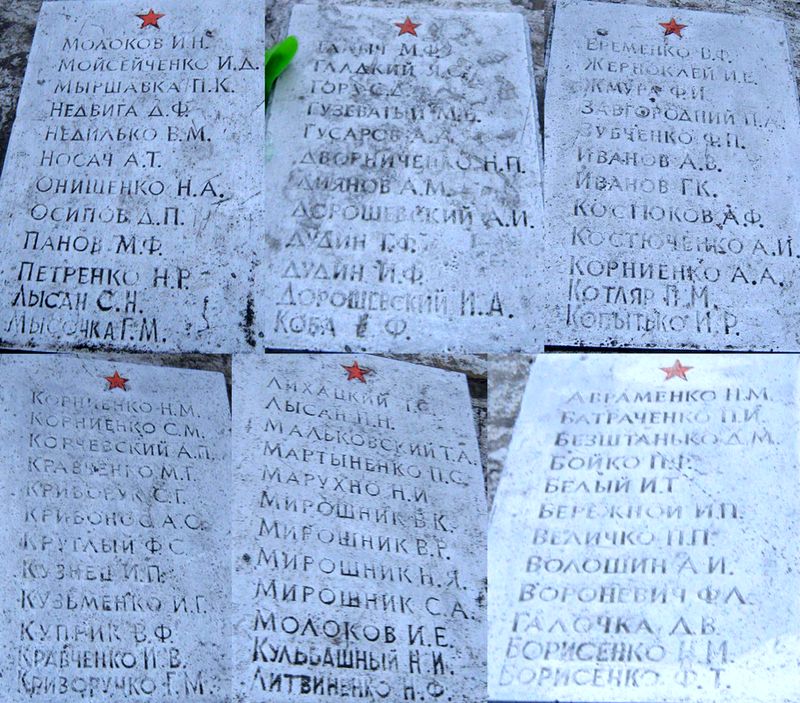 МОЛОКОВ И.Н.
МОЙСЕЙЧЕНКО И.Д.
МЫРШАВКА П.К.
НЕДВИГА Д.Ф.
НЕДИЛЬКО В.М.
НОСАЧ А.Т.
ОНИЩЕНКО Н.А.
ОСИПОВ Д.П.
ПАНОВ М.Ф.
ПЕТРЕНКО Н.Р.
ЛЫСАН С.Н.
МЫСОЧКА Г.М.
ГАЛИЧ М.Ф.
ГЛАДКИЙ Я.С.
ГОРА С.Д.
ГУЗЕВАТЫЙ М.В.
ГУСАРОВ А.А.
ДВОРНИЧЕНКО Н.П.
ДИЯНОВ А.М.
ДОРОШЕВСКИЙ А.И.
ДУДИН Г.Ф.
ДУДИН И.Ф.
ДОРОШЕВСКИЙ И.Д.
КОБА Е.Ф.
ЕРЕМЕНКО В.Ф.
ЖЕРНОКЛЕЙ И.Е.
ЖМУРА Ф.И.
ЗАВГОРОДНИЙ П.А.
ЗУБЧЕНКО Ф.П.
ИВАНОВ А.В.
ИВАНОВ Г.К.
КОСТЮКОВ А.Ф.
КОСТЮЧЕНКО А.И.
КОРНИЕНКО А.А.
КОТЛЯР П.М.
КОПЫТЬКО И.Р.
КОРНИЕНКО Н.М.
КОРНИЕНКО С.М.
КОРЧЕВСКИЙ А.П.
КРАВЧЕНКО М.Г.
КРИВОРУК С.Г.
КРИВОНОС А.С.
КРУГЛЫЙ Ф.С.
КУЗНЕЦ И.П.
КУЗЬМЕНКО И.Г.
КУПРИК В.Ф.
КРАВЧЕНКО И.В.
КРИВОРУЧКО Г.М.
ЛИХАЦКИЙ Т.С.
ЛЫСАН Н.Н.
МАЛЬКОВСКИЙ Т.А.
МАРТЫНЕНКО П.С.
МАРУХНО Н.И.
МИРОШНИК В.К.
МИРОШНИК В.Р.
МИРОШНИК Н.Я.
МИРОШНИК С.А.
МОЛОКОВ И.Е.
КУЛЬБАШНЫЙ Н.И.
ЛИТВИНЕНКО Н.Ф.
АВРАМЕНКО Н.М.
БАТРАЧЕНКО П.И.
БЕЗШТАНЬКО Д.М.
БОЙКО П.Г.
БЕЛЫЙ И.Т.
БЕРЕЖНОЙ И.П.
ВЕЛИЧКО П.П.
ВОЛОШИН А.И.
ВОРОНЕВИЧ Ф.Л.
ГАЛОЧКА Д.В.
БОРИСЕНКО Н.М.
БОРИСЕНКО Ф.Т.